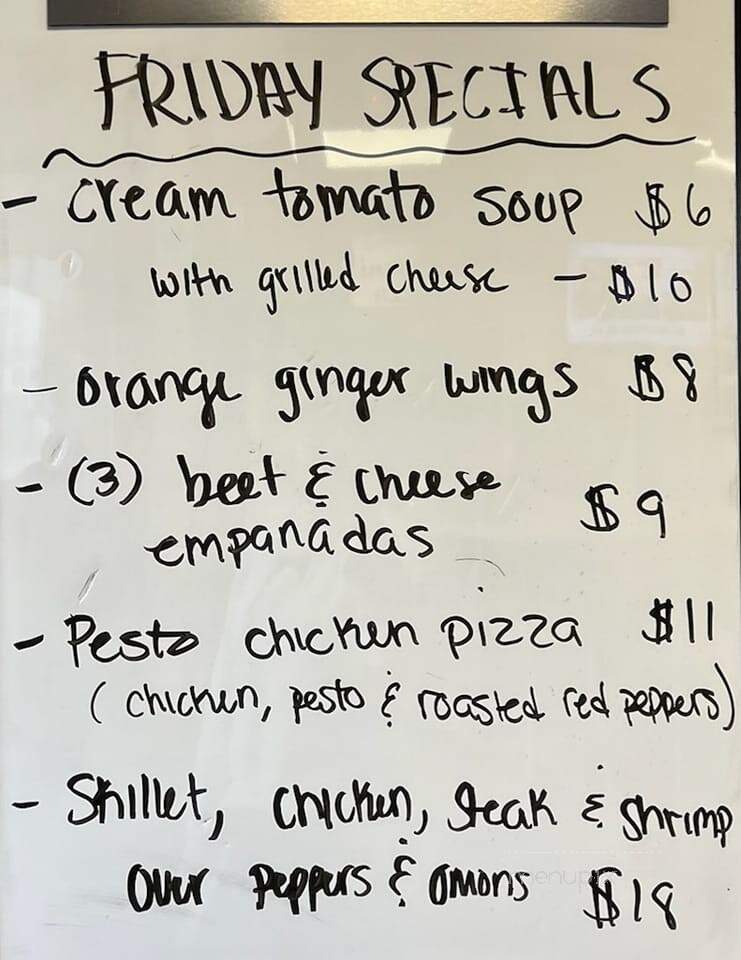 FRIDAY SPECIALS
- cream tomato soup $6
with grilled cheese - $10
- orange ginger wings $8
- (3) beef & cheese
empanadas $9
- Pesto chicken pizza $11
(chicken, pesto & roasted red peppers)
- Skillet, chicken, steak & shrimp
over peppers & onions $18